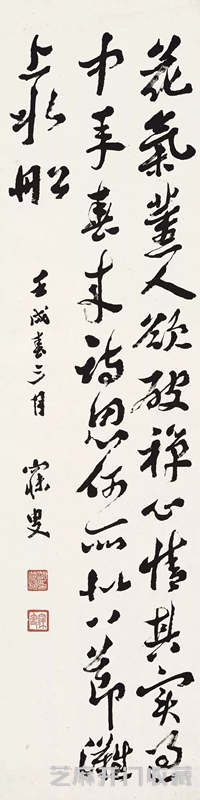 花氣薰人欲破禪心情其實過
中年春來詩思何所似八節灘
上水船
壬戌春三月 寐叟
芝麻开门收藏